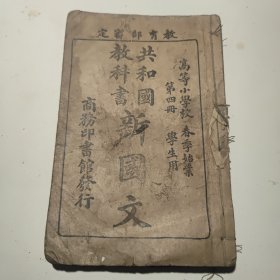 教育部審定
高等小學校 春季始業
第四冊 學生用
共和國
教科書
新國文
商務印書館發行